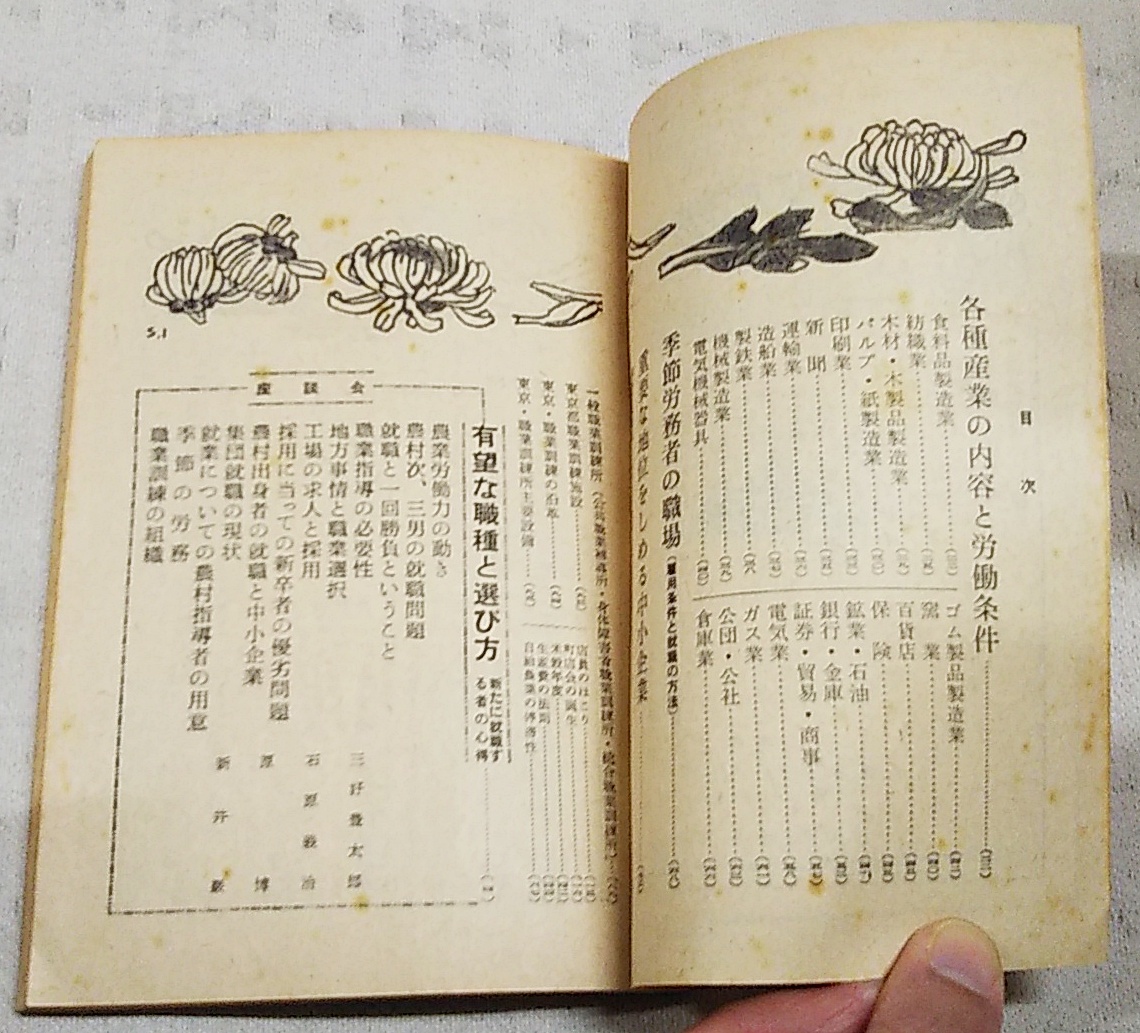 目次
各種産業の内容と労働条件
食料品製造業
紡織業
木材・木製品製造業
パルプ・紙製造業
印刷業
新聞
運輸業
造船業
製鉄業
機械製造業
電気機械器具
ゴム製品製造業
窯業
百貨店
保険
鉱業・石油
銀行・金庫
証券・貿易・商事
電気業
ガス業
公団・公社
倉庫業
季節労務者の職場(雇用条件と就職の方法)
重要な地位をしめる中小企業
一般職業訓練所(公共職業補導所・身体障害者職業訓練所・総合職業訓練所)
東京都職業訓練施設
東京・職業訓練の沿革
東京・職業訓練所主要設備
店員のほこり
町店会の誕生
米穀年度
生産費の法則
有望な職種と選び方
新たに就職する者の心得
座談会
農業労働力の動き
農村次、三男の就職問題
就職と一回勝負ということ
職業指導の必要性
地方事情と職業選択
工場の求人と採用
採用に当っての新卒者の優劣問題
農村出身者の就職と中小企業
集団就職の現状
就業についての農村指導者の用意
季節の労務
職業訓練の組織
三好豊太郎
石原義治
原博
新井巌
S.I